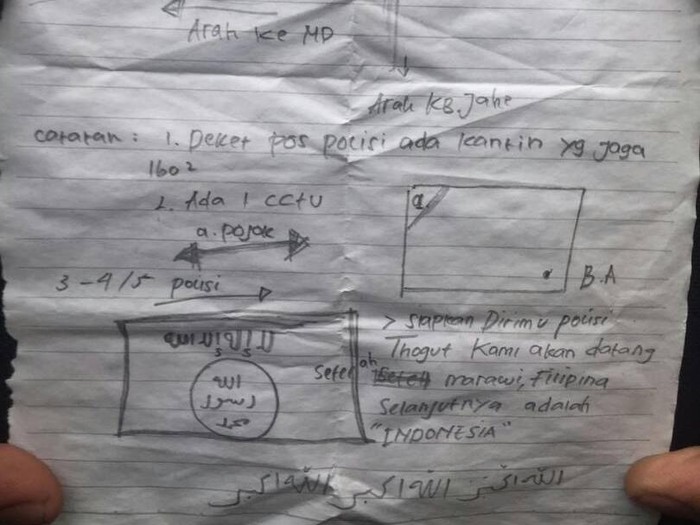 Arah ke MP
Arah KB. Jahe
Catatan : 1. Deket pos polisi ada kantin yg jaga
Ibo²
2. Ada 1 CCTV
a. pojok
a.
3-4/5 polisi
B.A
الله
رسول
محمد
> Siapkan Dirimu polisi
Thogut Kami akan datang
Setelah marawi, Filipina
Selanjutnya adalah
"INDONESIA"
الله اكبر الله اكبر الله اكبر